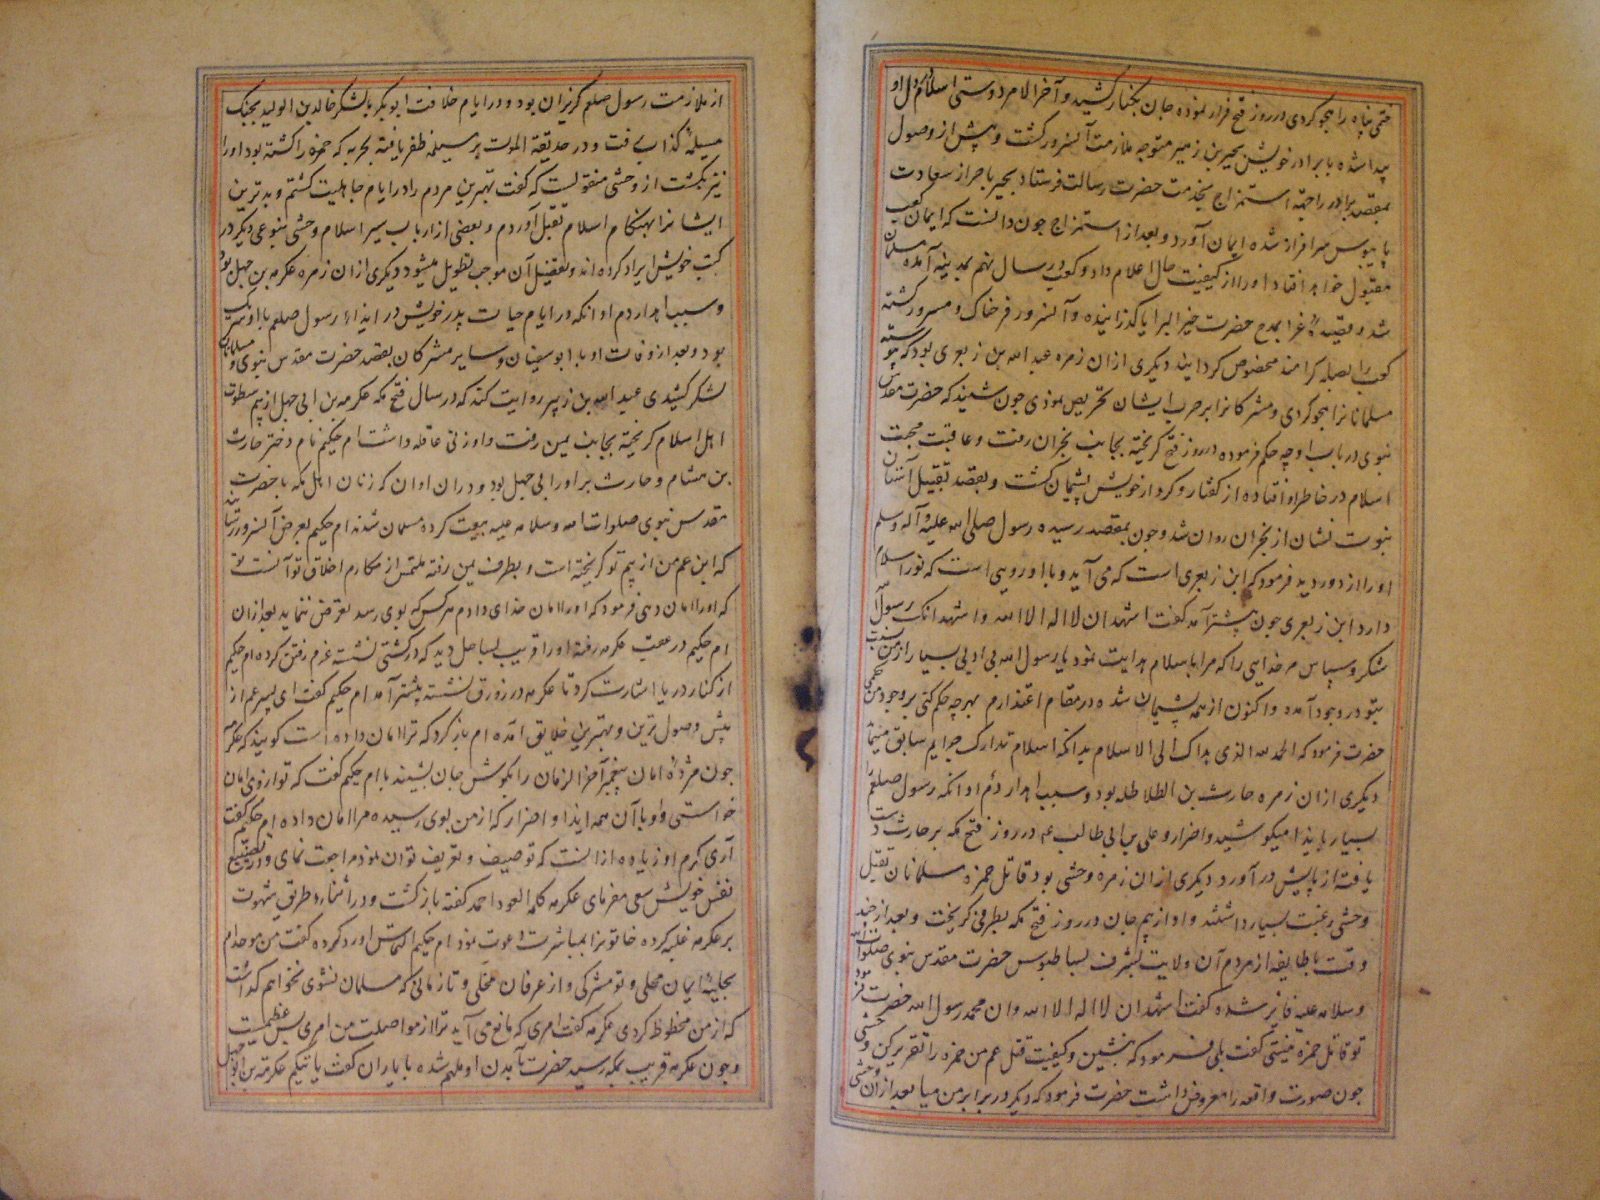 ختمی پناه را هجو کردی در روز فتح فرار نموده جان بکنار کشید و آخر الامر دوستی اسلام در دل او
پیدا شده با برادر خویش بحیر بن زهیر متوجه ملازمت آنسرور گشت و پیش از وصول
بمقصد برادر را جهة استمزاج بخدمت حضرت رسالت فرستاد بحیر باحراز سعادت
پایبوس سرافراز شده ایمان آورد و بعد از استمزاج چون دانست که ایمان کعب
مقبول خواهد افتاد او را از کیفیت حال اعلام داد و کعب در سال نهم بمدینه آمده مسلمان
شد و قصیده غرا بمدح حضرت خیر البرایا گذرانیده و آنسرور فرحناک و مسرور گشته
کعب را بصله کرامند مخصوص گردانید دیگری ازان زمره عبد الله بن زبعری بود که پیوسته
مسلمانانرا هجو کردی و مشرکانرا بر حرب ایشان تحریص نمودی چون شنید که حضرت مقدس
نبوی در باب او چه حکم فرموده در روز فتح گریخته بجانب نجران رفت و عاقبت محبت
اسلام در خاطر او افتاده از گفتار و کردار خویش پشیمان گشت و بقصد تقبیل آستان
نبوت نشان از نجران روان شد و چون بمقصد رسیده رسول صلی الله علیه و آله و سلم
او را از دور دید فرمود که ابن زبعری است که می آید و با او رویی است که نور اسلام
دارد ابن زبعری چون پیشتر آمد گفت اشهد ان لا اله الا الله و اشهد انک رسول الله
شکر و سپاس مر خدایی را که مرا باسلام هدایت نمود یا رسول الله بی ادبی بسیار از من نسبت
بتو در وجود آمده و اکنون از همه پشیمان شده در مقام اعتذارم بهرچه حکم کنی بر وجود من
حضرت فرمود که الحمد لله الذی هداک الی الاسلام بدانکه اسلام تدارک جرایم سابق مینماید
دیگری ازان زمره حارث بن الطلاطله بود و سبب اهدار دم او آنکه رسول صلعم را
بسیار ایذا میکوشید و اضرار و علی بن ابی طالب ع م در روز فتح مکه بر حارث دست
یافته از پایش در آورد دیگری ازان زمره وحشی بود قاتل حمزه مسلمانان بقتل
وحشی رغبت بسیار داشتند و او از بیم جان در روز فتح مکه بطرفی گریخت و بعد از چند
وقت با طایفه از مردم آن ولایت بشرف بساط بوس حضرت مقدس نبوی صلوات الله
و سلامه علیه فایز شده گفت اشهد ان لا اله الا الله و ان محمد رسول الله حضرت فرمود
تو قاتل حمزه نیستی گفت بلی فرمود که بنشین و کیفیت قتل عم من حمزه را تقریر کن وحشی
چون صورت واقعه را معروض داشت حضرت فرمود که دیگر در برابر من میا بعد ازان وحشی
از ملازمت رسول صلعم گریزان بود و در ایام خلافت ابو بکر با لشکر خالد بن الولید بجنگ
مسیلمه کذاب رفت و در حدیقة الموت بر مسیلمه ظفر یافته بحربه که حمزه را کشته بود او را
نیز بکشت از وحشی منقولست که گفت بهترین مردم را در ایام جاهلیت کشتم و بدترین
ایشانرا بهنگام اسلام بقتل آوردم و بعضی از ارباب سیر اسلام وحشی بنوعی دیگر در
کتب خویش ایراد کرده اند و تفصیل آن موجب تطویل میشود دیگری ازان زمره عکرمه بن جهل بود
و سبب اهدار دم او آنکه در ایام حیات پدر خویش در ایذاء رسول صلعم با او شریک
بود و بعد از وفات او با ابو سفیان و سایر مشرکان بقصد حضرت مقدس نبوی و مسلمانان
لشکر کشیدی عبد الله بن زبیر روایت کند که در سال فتح مکه عکرمه بن ابی جهل از بیم سطوت
اهل اسلام گریخته بجانب یمن رفت و او زنی عاقله داشت ام حکیم نام دختر حارث
بن هشام و حارث برادر ابی جهل بود و دران اوان که زنان اهل مکه با حضرت
مقدس نبوی صلوات الله و سلامه علیه بیعت کرده مسلمان شدند ام حکیم بعرض آنسرور رسانید
که ابن عم من از بیم تو گریخته است و بطرف یمن رفته ملتمس از مکارم اخلاق تو آنست
که او را امان دهی فرمود که او را امان خدای دادم هر کس که بوی رسد تعرض ننماید بعد ازان
ام حکیم در عقب عکرمه رفته او را قریب بساحل دید که در کشتی نشسته عزم رفتن کرده ام حکیم
از کنار دریا اشارت کرد تا عکرمه در زورق نشسته پیشتر آمد ام حکیم گفت ای پسر عم از
پیش وصول ترین و بهترین خلایق آمده ام باز گرد که ترا امان داده است گویند که عکرمه
چون مژده امان پیغمبر آخر الزمان را بگوش جان بشنید با ام حکیم گفت که تو از وی امان
خواستی و او با آن همه ایذا و اضرار که از من بوی رسیده مرا امان داده ام حکیم گفت
آری کرم او زیاده ازانست که توصیف و تعریف توان نمود مراجعت نمای و در تضییع
نفس خویش سعی مفرمای عکرمه کلمه العود احمد گفته باز گشت و در اثناء طریق شهوت
بر عکرمه غلبه کرده خاتونرا بمباشرت دعوت نمود ام حکیم التماس او رد کرده گفت من موحده ام
بحلیه ایمان محلی و تو مشرکی و از عرفان مخلی و تا زمانی که مسلمان نشوی نخواهم گذاشت
که از من محظوظ گردی عکرمه گفت امری که مانع می آید ترا از مواصلت من امری بس عظیمست
و چون عکرمه قریب بمکه رسید حضرت بآمدن او ملهم شده با یاران گفت یاتیکم عکرمة بن ابو جهل